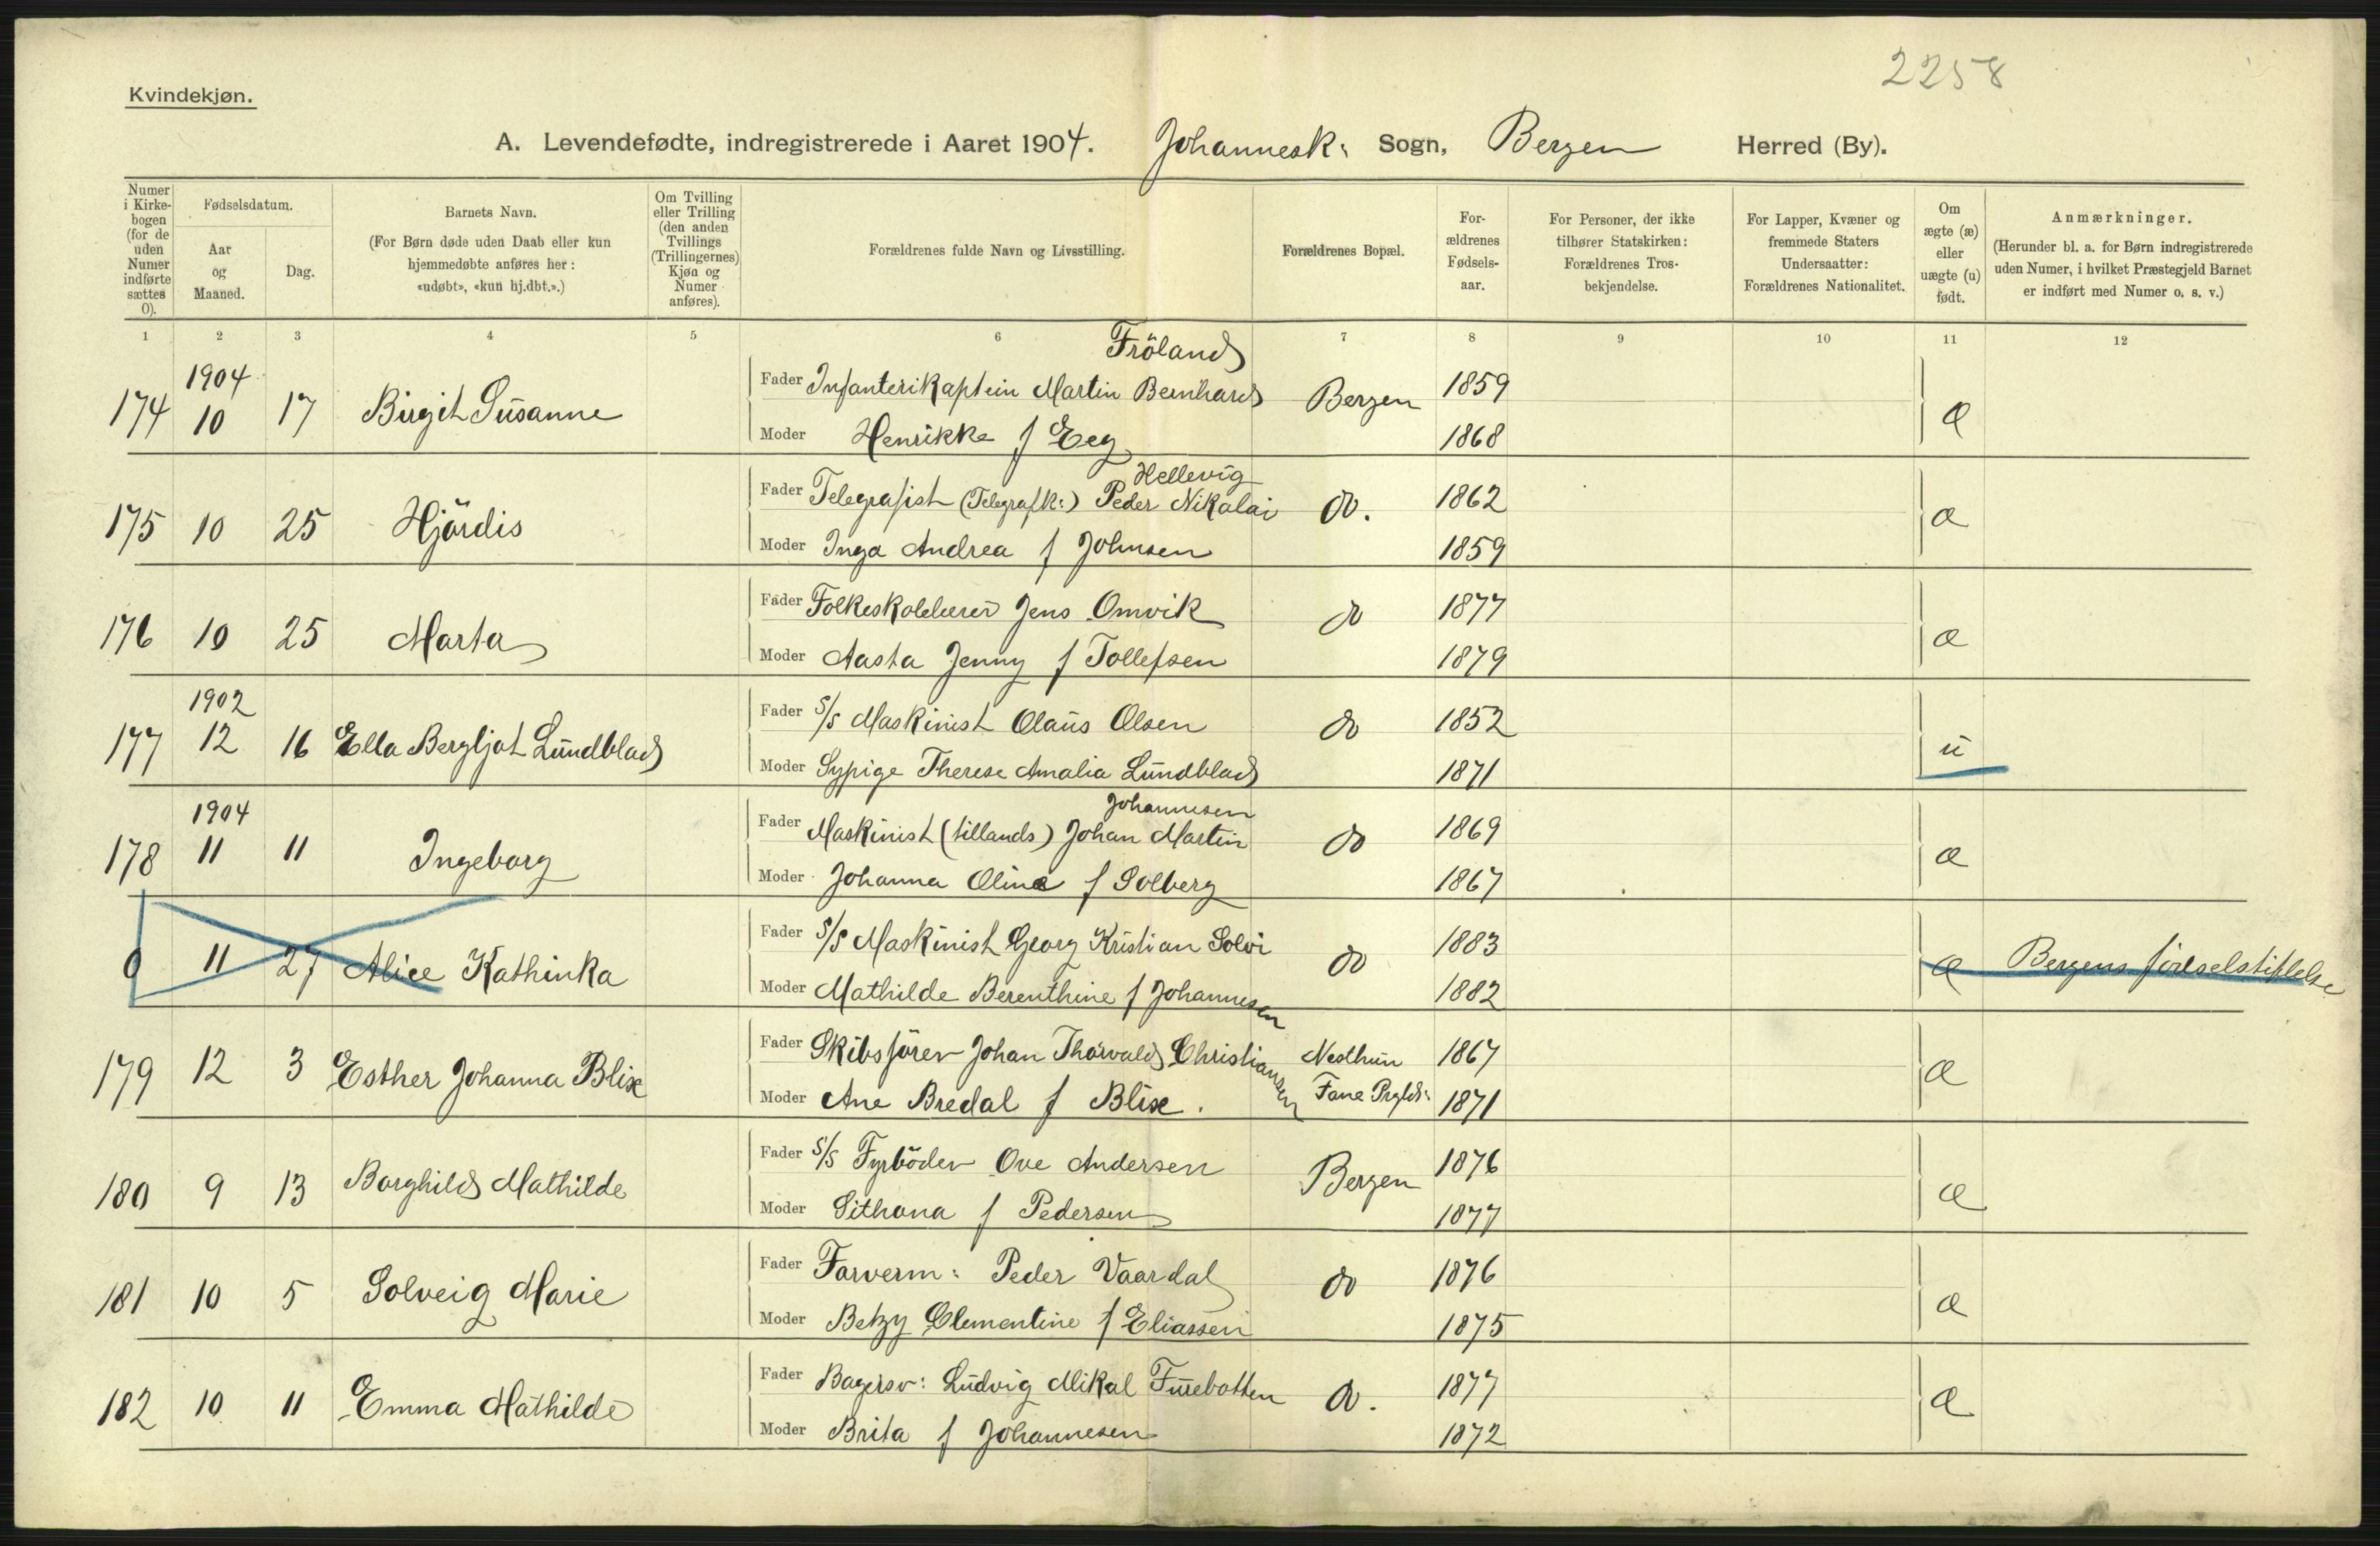 2258
Kvindekjøn.
A. Levendefødte, indregistrerede i Aaret 1904. Johannesk: Sogn, Bergen Herred (By).
Numer i Kirkebogen (for de uden Numer indførte sættes 0).
Fødselsdatum.
Aar og Maaned.
Dag.
Barnets Navn.
(For Børn døde uden Daab eller kun hjemmedøbte anføres her: «udøbt», «kun hj.dbt.».)
Om Tvilling eller Trilling (den anden Tvillings (Trillingernes) Kjøn og Numer anføres).
Forældrenes fulde Navn og Livsstilling.
Forældrenes Bopæl.
Forældrenes Fødselsaar.
For Personer, der ikke tilhører Statskirken: Forældrenes Trosbekjendelse.
For Lapper, Kvæner og fremmede Staters Undersaatter: Forældrenes Nationalitet.
Om ægte (æ) eller uægte (u) født.
Anmærkninger.
(Herunder bl. a. for Børn indregistrerede uden Numer, i hvilket Præstegjeld Barnet er indført med Numer o. s. v.)
1 2 3 4 5 6 7 8 9 10 11 12
Fröland
174 1904 10 17 Birgit Susanne Fader Infanterikaptein Martin Bernhard Bergen 1859 æ
Moder Henrikke f Eeg 1868
Hellevig
175 10 25 Hjördis Fader Telegrafist (Telegrafk:) Peder Nikolai do. 1862 æ
Moder Inga Andrea f Johnsen 1859
176 10 25 Marta Fader Folkeskolelærer Jens Omvik do 1877 æ
Moder Aasta Jenny f Tollefsen 1879
177 1902 12 16 Ella Bergljot Lundblad Fader S/S Maskinist Olaus Olsen do 1852 u
Moder Sypige Therese Amalia Lundblad 1871
Johannesen
178 1904 11 11 Ingeborg Fader Maskinist (tillands) Johan Martin do 1869 æ
Moder Johanna Oline f Solberg 1867
0 11 27 Alice Kathinka Fader S/S Maskinist Georg Kristian Solvi do 1883 æ Bergens födselsstiftelse
Moder Mathilde Berenthine f Johannesen 1882
179 12 3 Esther Johanna Blix Fader Skibsförer Johan Thorvald Christiansen Nesthun 1867 æ
Moder Ane Bredal f Blix. Fane Prgld: 1871
180 9 13 Borghild Mathilde Fader S/S Fyrböder Ove Andersen Bergen 1876 æ
Moder Sithana f Pedersen 1877
181 10 5 Solveig Marie Fader Farverm: Peder Vaardal do 1876 æ
Moder Betzy Clementine f Eliassen 1875
182 10 11 Emma Mathilde Fader Bagersv: Ludvig Mikal Furebotten do. 1877 æ
Moder Brita f Johannesen 1872